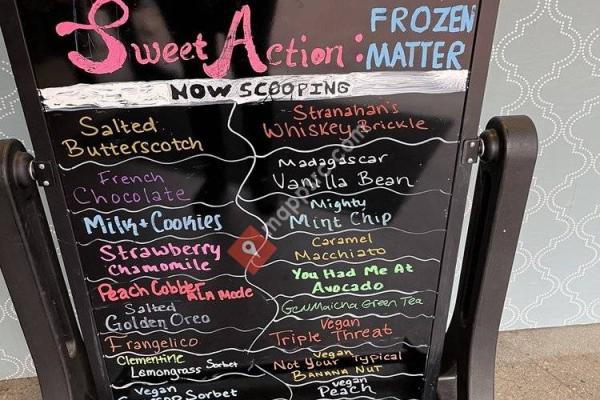 Sweet Action: FROZEN MATTER
NOW SCOOPING
Salted
Butterscotch
French
Chocolate
Milk + Cookies
Strawberry
Chamomile
Peach Cobbler ALA MODE
Salted
Golden Oreo
Frangelico
Clementine
Lemongrass Sorbet
Vegan
Sorbet
Stranahan's
Whiskey Brickle
Madagascar
Vanilla Bean
Mighty
Mint Chip
Caramel
Macchiato
You Had Me At
Avocado
GenMaicha Green Tea
Vegan
Triple Threat
Vegan
Not Your Typical
Banana Nut
Vegan
Peach